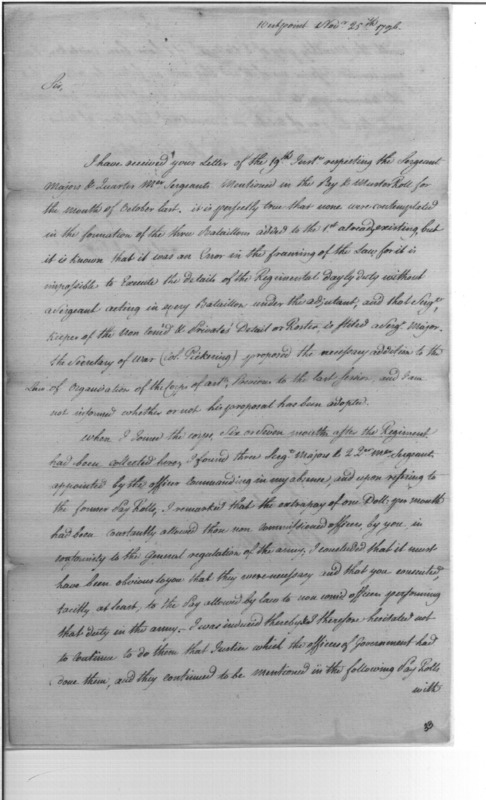 Westpoint Nov.r 25th 1796.
Sir,
I have received your Letter of the 19th Inst.t respecting the Sergeant
Majors & Quarter Mas. Sergeants Mentioned in the Pay & Muster Roll for
the months of October last. it is perfectly true that none were contemplated
in the formation of the three Bataillons added to the 1st already existing, but
it is known that it was an Error in the framing of the Law, for it is
impossible to Execute the details of the Regimental Dayly duty without
a Sergeant acting in every Bataillon under the adjutant, and that Serg.t
Keeper of the Non Com'd & Privates' Detail or Roster, is stiled a Serg.t Major.
the Secretary of War (Col. Pickering) proposed the necessary addition to the
Law of Organisation of the Corps of art.y Previous to the last Session, and I am
not informed whether or not his proposal has been adopted.
When I Joined the corps, Six or Seven months after the Regiment
had been collected here, I found three Serg.t Majors & 2 Q.r Mas. Sergeants
appointed by the officer Commanding in my absence, and upon refering to
the former Pay Rolls, I remarked that the extra pay of one Doll. per month
had been Constantly allowed those non commissioned officers by you in
conformity to the General regulation of the army, I concluded that it must
have been obvious to you that they were necessary and that you consented,
tacitly at least, to the Pay allowed by law to non com'd officers performing
that duty in the army. I was induced thereby & therefore hesitated not
to Continue to do them that Justice which the officers of Government had
done them, and they continued to be mentioned in the following Pay Rolls
with